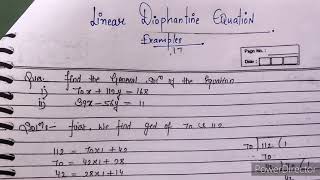 Linear Diophantine Equation
Examples
17
Page No. :
Date :
Ques:- find the General Solⁿ of the Equation
i) 70x + 112y = 168
ii) 39x - 56y = 11
Solⁿ:- first, We find gcd of 70 & 112
112 = 70x1 + 42
70 = 42x1 + 28
42 = 28x1 + 14
70 ) 112 ( 1
- 70
42